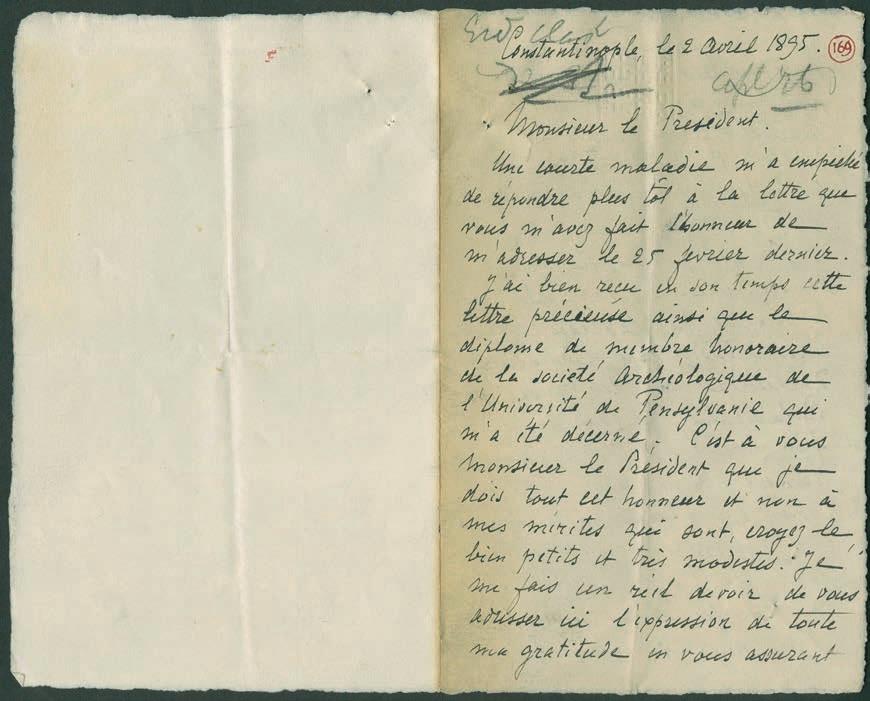 Constantinople, le 2 avril 1895.
169
Monsieur le President.
Une courte maladie m'a empêché
de répondre plus tôt à la lettre que
vous m'avez fait l'honneur de
m'adresser le 25 fevrier dernier.
J'ai bien recu en son temps cette
lettre précieuse ainsi que le
diplome de membre honoraire
de la societé Archéologique de
l'Université de Pensylvanie qui
m'a été décerné. C'est à vous
Monsieur le Président que je
dois tout cet honneur et non à
mes mérites qui sont, croyez-le,
bien petits et très modestes. Je
me fais un réel devoir de vous
adresser ici l'expression de toute
ma gratitude en vous assurant